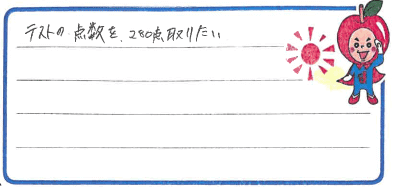 テストの点数を、280点取りたい